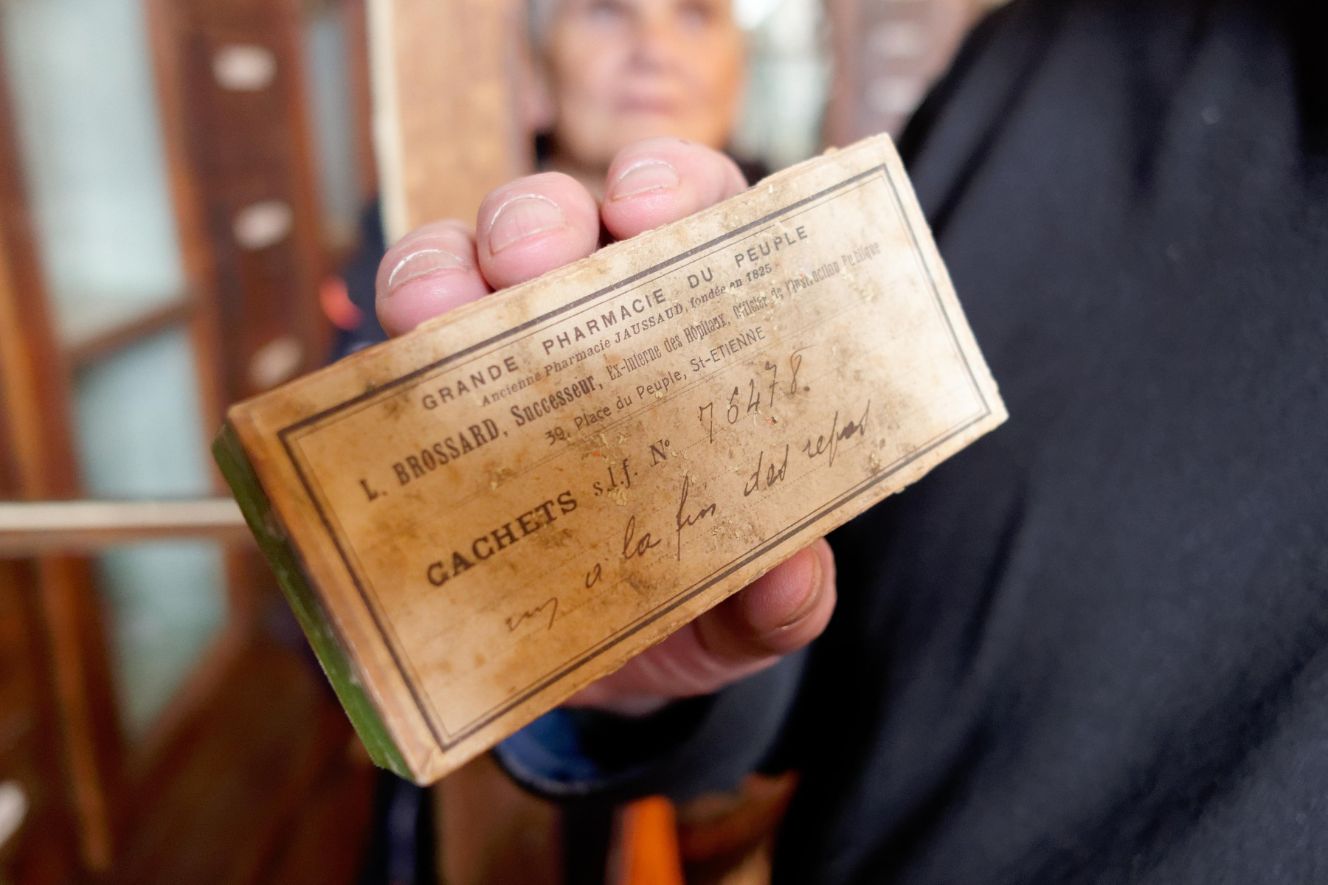 GRANDE PHARMACIE DU PEUPLE
Ancienne Pharmacie JAUSSAUD, fondée en 1825
L. BROSSARD, Successeur, Ex-Interne des Hôpitaux, Officier de l'Instruction Publique
39, Place du Peuple, St-ETIENNE
CACHETS s.l.f. N° 76478.
à la fin des repas